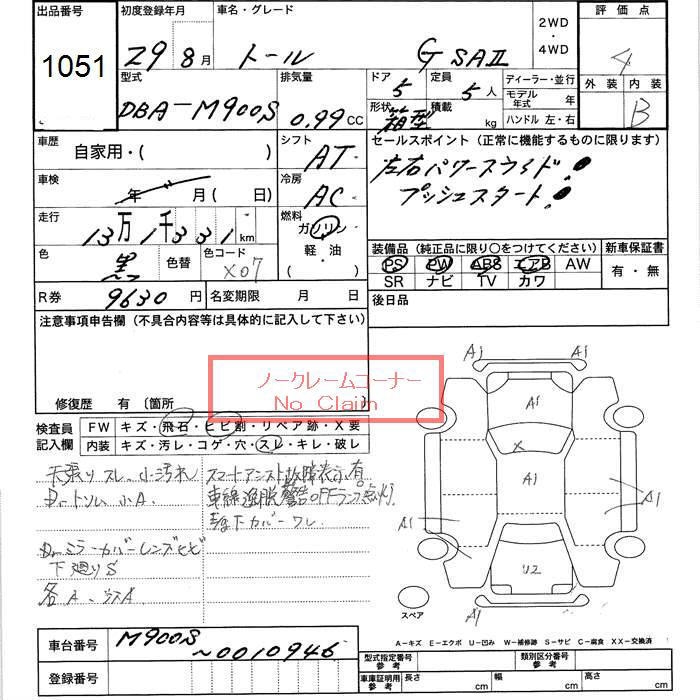 出品番号 1051
初度登録年月 29 8月
車名・グレード トール G SAⅡ
2WD・4WD
評価点 4
外装 内装 B
型式 DBA-M900S
排気量 0.99CC
ドア 5 定員 5人
形状 箱型 積載 kg
ディーラー・並行
モデル年式 年
ハンドル 左・右
車歴 自家用・( )
シフト AT
セールスポイント（正常に機能するものに限ります）
左右パワースライド!
プッシュスタート!
車検 年 月(日)
冷房 AC
走行 13万1千331km
燃料 ガソリン
軽・油
( )
色 黒 色替 色コード X07
装備品（純正品に限り○をつけてください） 新車保証書
PS PW ABS エアB AW 有・無
SR ナビ TV カワ
R券 9630円 名変期限 月 日
後日品
注意事項申告欄（不具合内容等は具体的に記入して下さい）
ノークレームコーナー
No Claim
修復歴 有 〔箇所
検査員記入欄 FW キズ・飛石・ヒビ割・リペア跡・X要
内装 キズ・汚レ・コゲ・穴・スレ・キレ・破レ
天張りスレ、小汚れ スマートアシスト故障表示有
車線逸脱警告OFFランプ点灯
下カバーワレ
ミラーカバーレンズヒビ
下廻りS
各A
A1 A1
A1
X
A1
A1 A1
U2
A1
スペア
A－キズ E－エクボ U－凹み W－補修跡 S－サビ C－腐食 XX－交換済
車台番号 M900S～0010946
登録番号
型式指定番号 参考 類別区分番号 参考
車庫証明用 参考 長さ cm 幅 cm 高さ cm